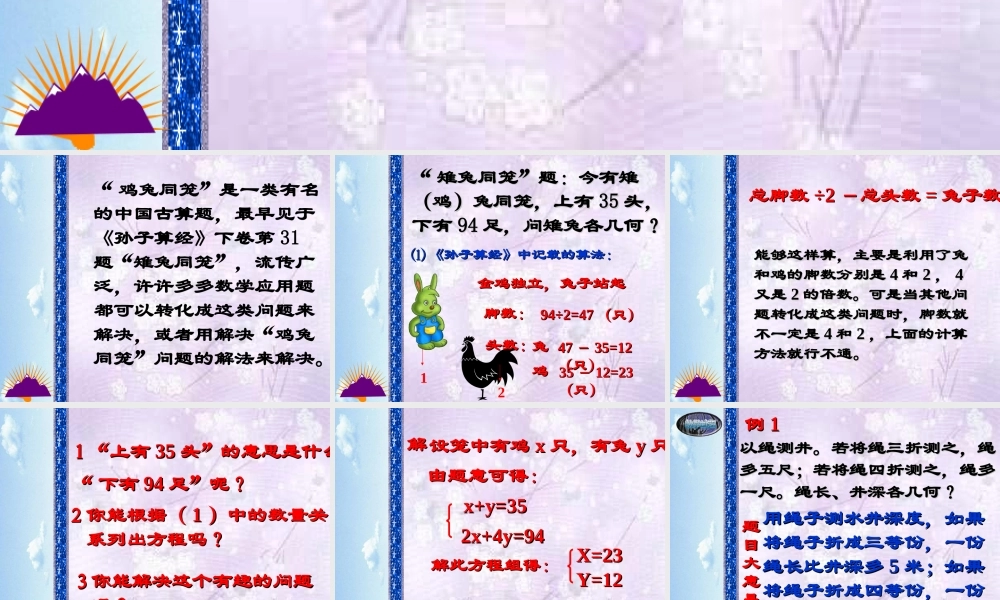 “ 鸡兔同笼”是一类有名
的中国古算题，最早见于
《孙子算经》下卷第 31
题“雉兔同笼”，流传广
泛，许许多多数学应用题
都可以转化成这类问题来
解决，或者用解决“鸡兔
同笼”问题的解法来解决。
“ 雉兔同笼”题：今有雉
（鸡）兔同笼，上有 35 头，
下有 94 足，问雉兔各几何？
⑴《孙子算经》中记载的算法：
金鸡独立，兔子站起
脚数： 94÷2=47 （只）
头数：兔 47 － 35=12
（只）
鸡 35 － 12=23
（只）
1
2
总脚数 ÷2 －总头数 = 兔子数
能够这样算，主要是利用了兔
和鸡的脚数分别是 4 和 2 ， 4
又是 2 的倍数。可是当其他问
题转化成这类问题时，脚数就
不一定是 4 和 2 ，上面的计算
方法就行不通。
1 “上有 35 头”的意思是什
“ 下有 94 足”呢？
2 你能根据（ 1 ）中的数量关
系列出方程吗？
3 你能解决这个有趣的问题
解设笼中有鸡 x 只，有兔 y 只
由题意可得：
x+y=35
2x+4y=94
解此方程组得：
X=23
Y=12
例 1
以绳测井。若将绳三折测之，绳
多五尺；若将绳四折测之，绳多
一尺。绳长、井深各几何？
题目大意
用绳子测水井深度，如果
将绳子折成三等份，一份
绳长比井深多 5 米；如果
将绳子折成四等份，一份